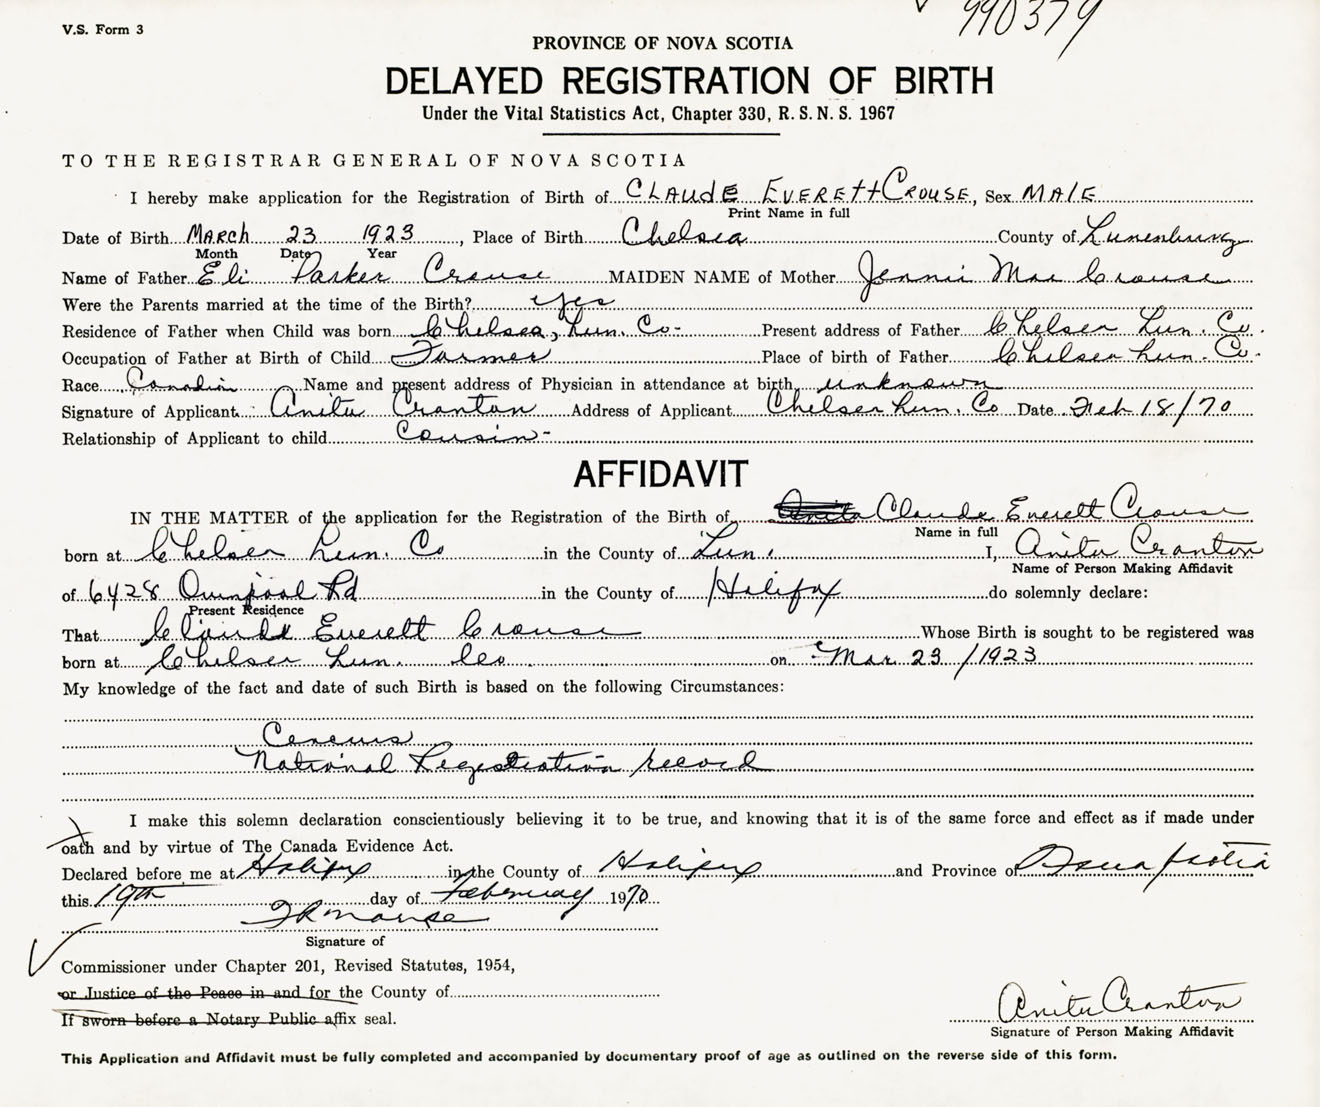 V.S. Form 3
990379
PROVINCE OF NOVA SCOTIA
DELAYED REGISTRATION OF BIRTH
Under the Vital Statistics Act, Chapter 330, R. S. N. S. 1967
TO THE REGISTRAR GENERAL OF NOVA SCOTIA
I hereby make application for the Registration of Birth of CLAUdE EVEREtt CROUSE, Sex MAlE
Print Name in full
Date of Birth MARch 23 1923, Place of Birth Chelsea County of Lunenburg
Month Date Year
Name of Father Eli Parker Crouse MAIDEN NAME of Mother Jennie Mae Crouse
Were the Parents married at the time of the Birth? yes
Residence of Father when Child was born Chelsea, Lun. Co- Present address of Father Chelsea Lun. Co.
Occupation of Father at Birth of Child Farmer Place of birth of Father Chelsea Lun. Co.
Race Canadian Name and present address of Physician in attendance at birth unknown
Signature of Applicant Anita Cranton Address of Applicant Chelsea Lun. Co Date Feb 18/70
Relationship of Applicant to child Cousin-
AFFIDAVIT
IN THE MATTER of the application for the Registration of the Birth of Anita Claude Everett Crouse
Name in full
born at Chelsea Lun. Co in the County of Lun. I, Anita Cranton
Name of Person Making Affidavit
of 6428 Quinpool Rd in the County of Halifax do solemnly declare:
Present Residence
That Claude Everett Crouse Whose Birth is sought to be registered was
born at Chelsea Lun. Co on Mar 23/1923
My knowledge of the fact and date of such Birth is based on the following Circumstances:
Cencus
National Registration record
I make this solemn declaration conscientiously believing it to be true, and knowing that it is of the same force and effect as if made under
oath and by virtue of The Canada Evidence Act.
Declared before me at Halifax in the County of Halifax and Province of Nova Scotia
this 19th day of February 1970
Signature of
Commissioner under Chapter 201, Revised Statutes, 1954,
or Justice of the Peace in and for the County of
If sworn before a Notary Public affix seal.
Anita Cranton
Signature of Person Making Affidavit
This Application and Affidavit must be fully completed and accompanied by documentary proof of age as outlined on the reverse side of this form.